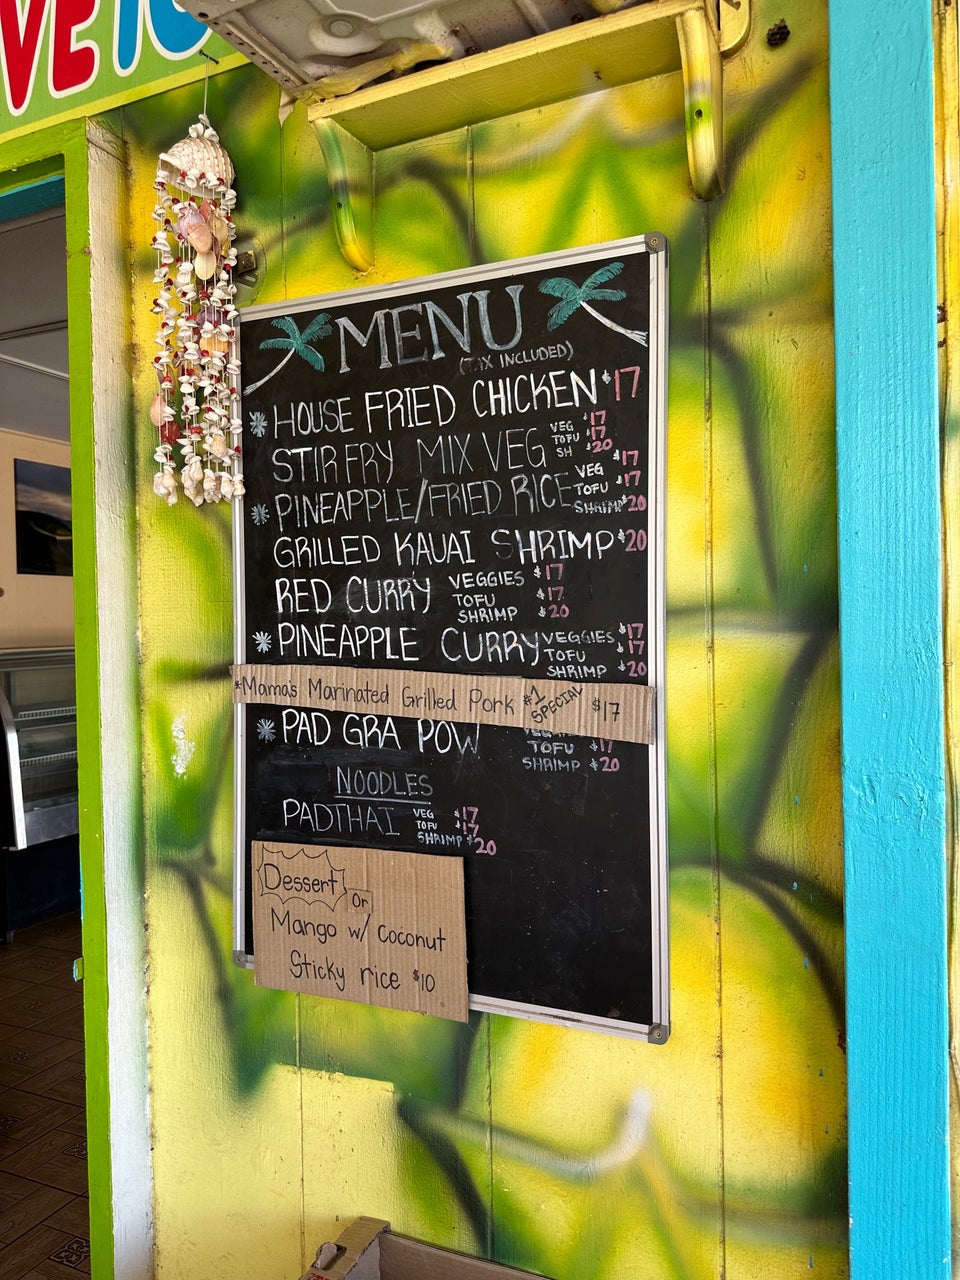 VE TO
MENU
(TAX INCLUDED)
* HOUSE FRIED CHICKEN $17
STIRFRY MIX VEG VEG $17
TOFU $17
SH $20
* PINEAPPLE/FRIED RICE VEG $17
TOFU $17
SHRIMP $20
GRILLED KAUAI SHRIMP $20
RED CURRY VEGGIES $17
TOFU $17
SHRIMP $20
* PINEAPPLE CURRY VEGGIES $17
TOFU $17
SHRIMP $20
*Mama's Marinated Grilled Pork #1 SPECIAL $17
* PAD GRA POW
TOFU $17
SHRIMP $20
NOODLES
PADTHAI VEG $17
TOFU $17
SHRIMP $20
Dessert
or
Mango w/ Coconut
Sticky rice $10